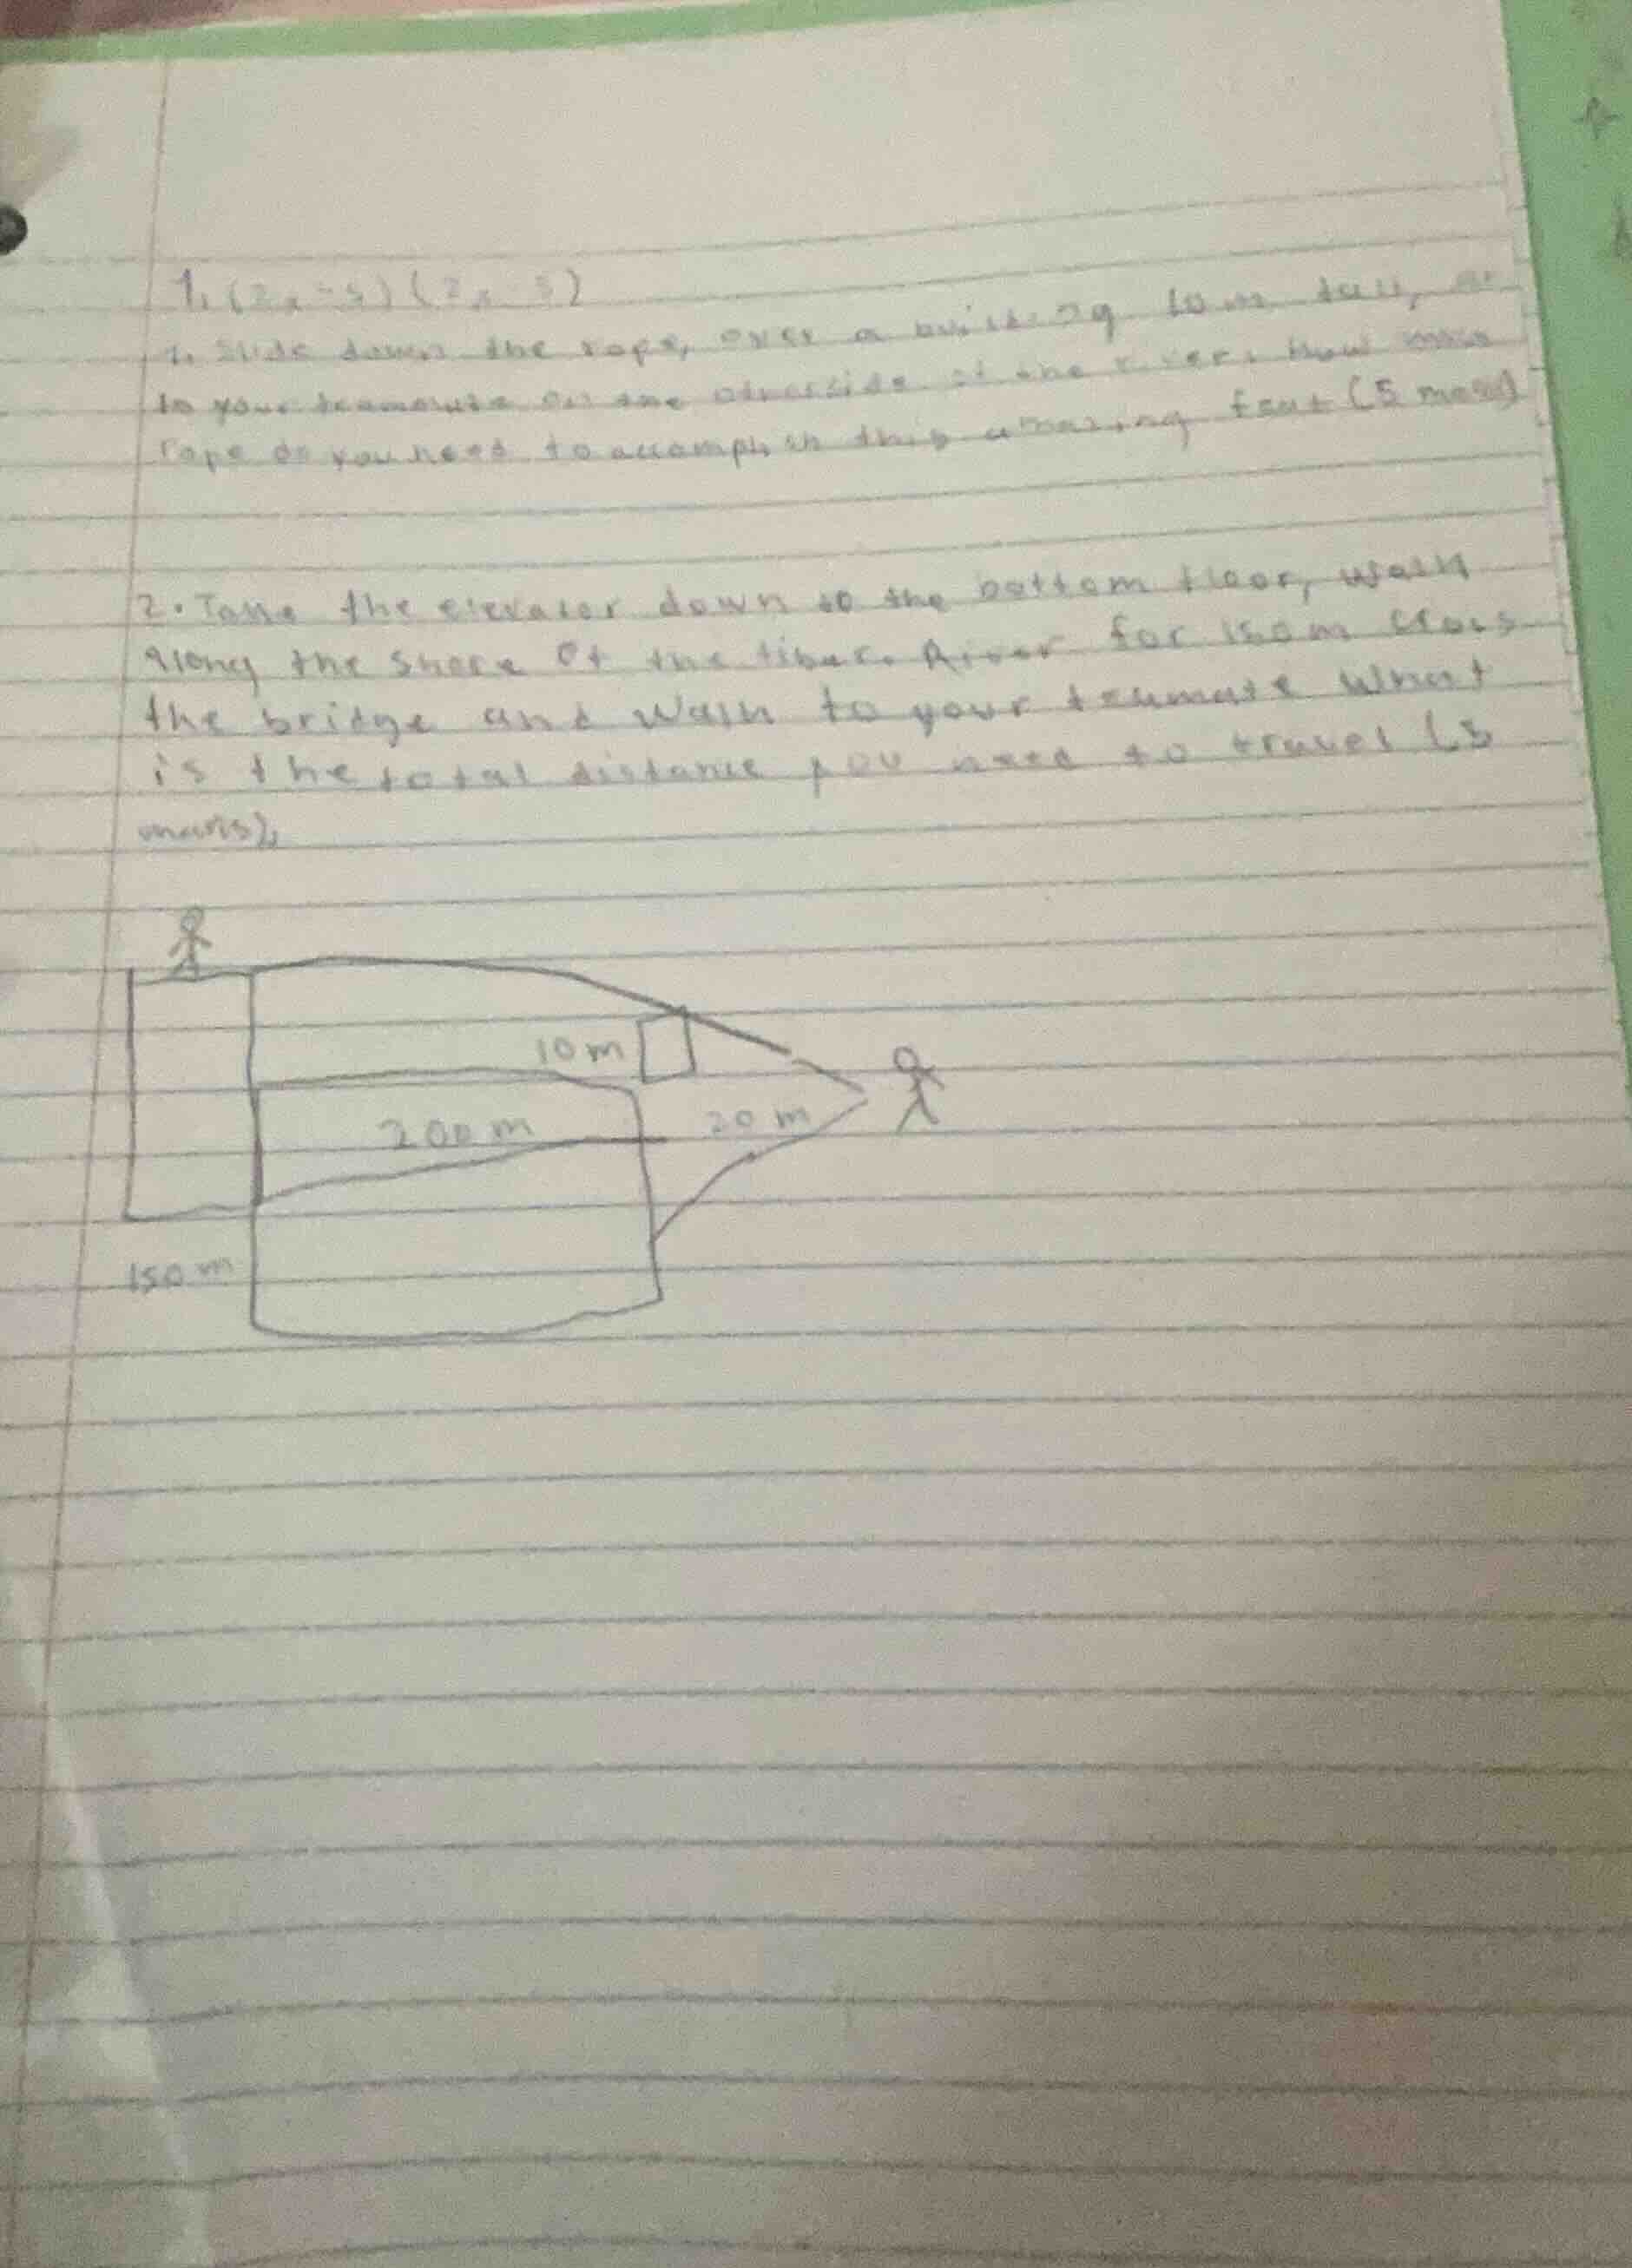 1. (2x-5) (2x-5)
1. Slide down the rope, over a building 10m tall,
to your teammate on the otherside of the river. How
rope do you need to accomplish this amazing feat (5
2. Take the elevator down to the bottom floor, walk
along the shore of the tiber. River for 150m cross
the bridge and walk to your teamate what
is the total distance you need to travel (3
10 m
200 m
20 m
150 m